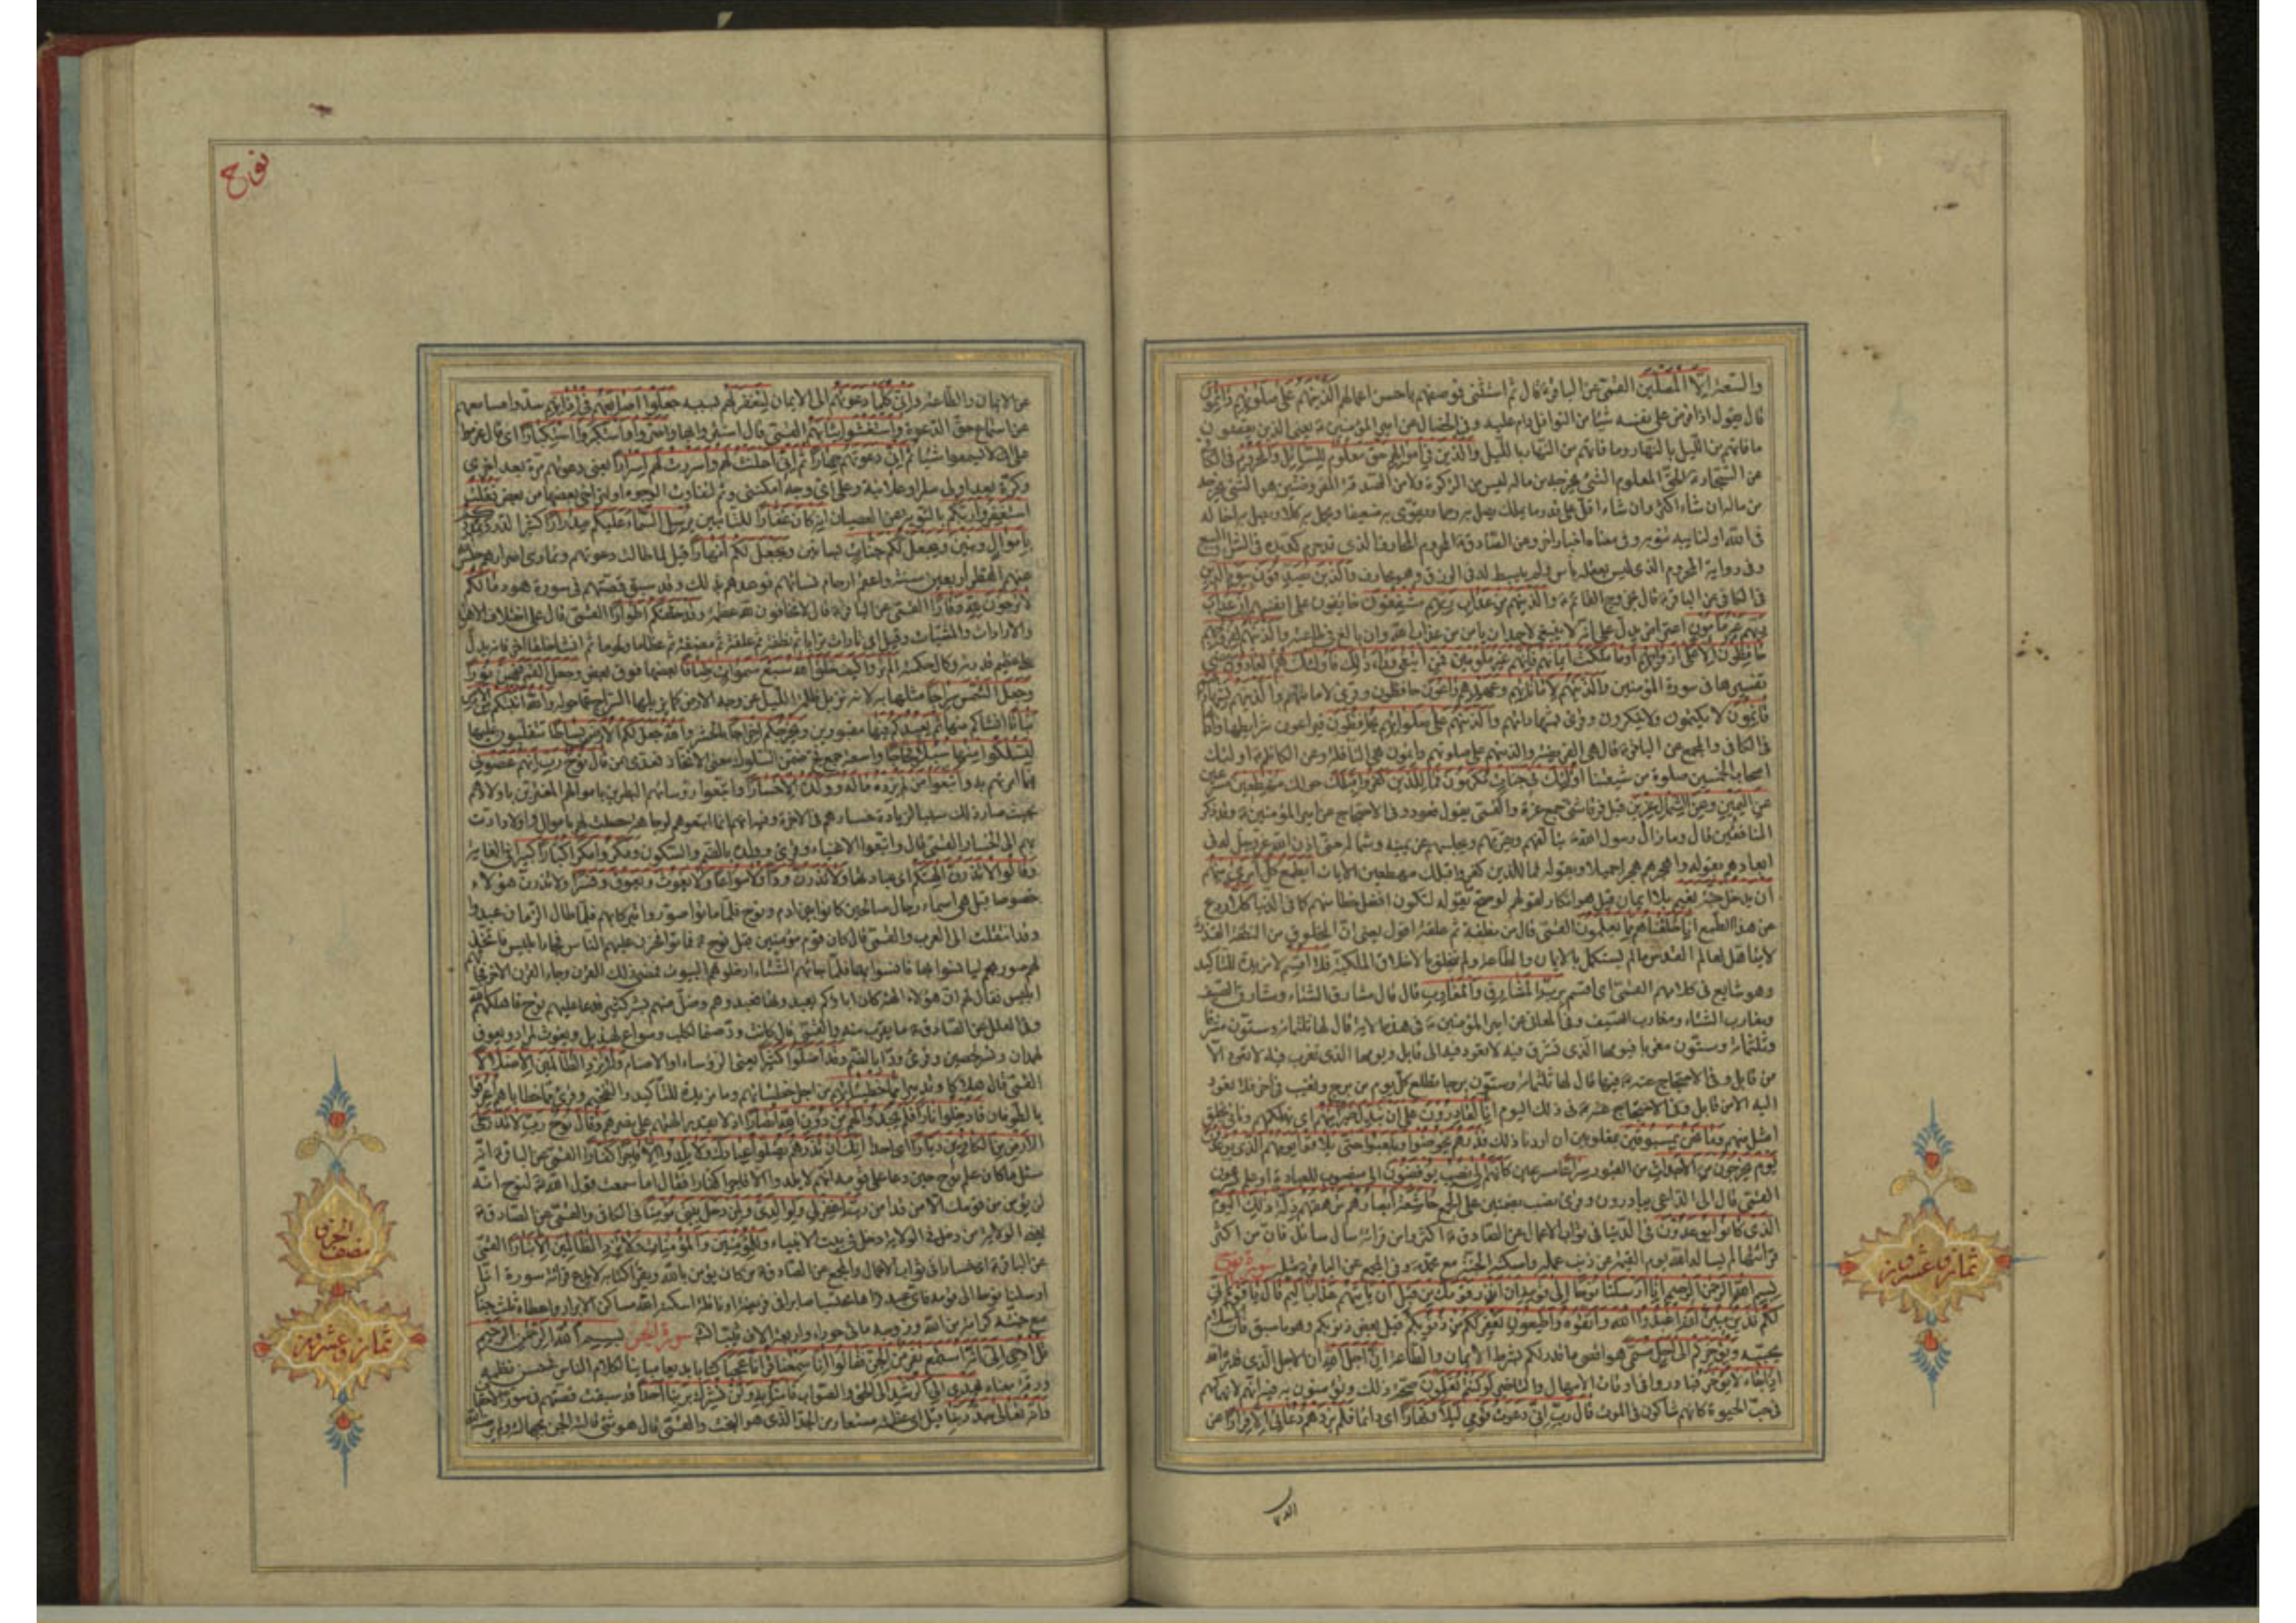 والسعة إلا المصلين القمي عن الباقر قال ثم استثنى فوصفهم باحسن اعمالهم الذين هم على صلوتهم دائمون
قال يقول اذا فرض على نفسه شيئا من النوافل دام عليه وفي الخصال عن امير المؤمنين يعني الذين يقضون
ما فاتهم من الليل بالنهار وما فاتهم من النهار بالليل والذين في أموالهم حق معلوم للسائل والمحروم في الكافي
عن السجاد الحق المعلوم الشيء يخرجه من ماله ليس من الزكوة ولا من الصدقة المفروضتين هو الشيء يخرجه
من ماله ان شاء اكثر وان شاء اقل على قدر ما يملك يصل به رحما ويقوي به ضعيفا ويحمل به كلا ويصل به اخا له
في الله او لنائبة تنوبه وفي معناه اخبار اخر وعن الصادق المحروم المحارف الذي قد حرم كد يده في الشراء والبيع
وفي رواية المحروم الذي ليس بعقله باس ولم يبسط له في الرزق وهو محارف والذين يصدقون بيوم الدين
في الكافي عن الباقر قال بخروج القائم والذين هم من عذاب ربهم مشفقون خائفون على انفسهم إن عذاب
ربهم غير مأمون اعتراض يدل على انه لا ينبغي لاحد ان يأمن من عذاب الله وان بالغ في طاعته والذين هم لفروجهم
حافظون إلا على أزواجهم أو ما ملكت أيمانهم فإنهم غير ملومين فمن ابتغى وراء ذلك فأولئك هم العادون سبق
تفسيرها في سورة المؤمنين والذين هم لأماناتهم وعهدهم راعون حافظون وقرئ لأمانتهم والذين هم بشهادتهم
قائمون لا يكتمون ولا ينكرون وقرئ بشهاداتهم والذين هم على صلواتهم يحافظون فيراعون شرائطها وآدابها
في الكافي والمجمع عن الباقر قال هي الفريضة والذين هم على صلوتهم دائمون هي النافلة وعن الكاظم اولئك
اصحاب الخمسين صلوة من شيعتنا أولئك في جنات مكرمون فمال الذين كفروا قبلك حولك مهطعين مسرعين
عن اليمين وعن الشمال عزين فرقا شتى جمع عزة والقمي يقول قعود وفي الاحتجاج عن امير المؤمنين وقد ذكر
المنافقين قال وما زال رسول الله يتألفهم ويقربهم ويجلسهم عن يمينه وشماله حتى اذن الله عز وجل له في
ابعادهم بقوله واهجرهم هجرا جميلا وبقوله فمال الذين كفروا قبلك مهطعين الآيات أيطمع كل امرئ منهم
أن يدخل جنة نعيم بلا ايمان قيل هو انكار لقولهم لو صح ما يقوله لنكون افضل حظا منهم كما في الدنيا كلا ردع
عن هذا الطمع إنا خلقناهم مما يعلمون القمي قال من نطفة ثم علقة اقول يعني ان المخلوق من النطفة القذرة
لا يتأهل لعالم القدس ما لم يستكمل بالايمان والطاعة ولم يتخلق بالاخلاق الملكية فلا أقسم لا مزيدة للتأكيد
وهو شايع في كلامهم القمي اي اقسم برب المشارق والمغارب قال مشارق الشتاء ومشارق الصيف
ومغارب الشتاء ومغارب الصيف وفي المعاني عن امير المؤمنين في هذه الاية قال لها ثلثمائة وستون مشرقا
وثلثمائة وستون مغربا فيومها الذي تشرق فيه لا تعود فيه الى قابل ويومها الذي تغرب فيه لا تعود الا
من قابل وفي الاحتجاج عنه قال لها ثلثمائة وستون برجا تطلع كل يوم من برج وتغيب في اخر فلا تعود
اليه الا من قابل في ذلك اليوم إنا لقادرون على أن نبدل خيرا منهم اي نهلكهم ونأتي بخلق
امثل منهم وما نحن بمسبوقين بمغلوبين ان اردنا ذلك فذرهم يخوضوا ويلعبوا حتى يلاقوا يومهم الذي يوعدون
يوم يخرجون من الأجداث من القبور سراعا مسرعين كأنهم إلى نصب يوفضون الى منصوب للعبادة او علم يسرعون
القمي قال الى الداعي يبادرون وقرئ نصب بضمتين على الجمع خاشعة أبصارهم ترهقهم ذلة ذلك اليوم
الذي كانوا يوعدون في الدنيا في ثواب الاعمال عن الصادق اكثروا من قرائة سأل سائل فان من اكثر
قرائتها لم يسأله الله يوم القيمة عن ذنب عمله واسكنه الجنة مع محمد وفي المجمع عن الباقر مثله سورة نوح
بسم الله الرحمن الرحيم إنا أرسلنا نوحا إلى قومه ان أنذر قومك من قبل أن يأتيهم عذاب أليم قال يا قوم إني
لكم نذير مبين أن اعبدوا الله واتقوه وأطيعون يغفر لكم من ذنوبكم قيل بعض ذنوبكم وهو ما سبق فان الاسلام
يجبه ويؤخركم إلى أجل مسمى هو اقصى ما قدر لكم بشرط الايمان والطاعة إن أجل الله ان الاجل الذي قدره الله
إذا جاء لا يؤخر فبادروا في اوقات الامهال والتأخير لو كنتم تعلمون
في حب الحيوة كأنهم شاكون في الموت قال رب إني دعوت قومي ليلا ونهارا اي دائما فلم يزدهم دعائي إلا فرارا عن
الايمان
نوح
عن الايمان والطاعة وإني كلما دعوتهم الى الايمان لتغفر لهم بسببه جعلوا أصابعهم في آذانهم سدوا مسامعهم
عن استماع الدعوة واستغشوا ثيابهم القمي قال استتروا بها وأصروا واستكبروا استكبارا
ثم إني دعوتهم جهارا ثم إني أعلنت لهم وأسررت لهم إسرارا يعني دعوتهم مرة بعد اخرى
وكرة بعد اولى سرا وعلانية وعلى اي وجه امكنني وثم لتفاوت الوجوه او لتراخي بعضها عن بعض فقلت
استغفروا ربكم بالتوبة عن العصيان إنه كان غفارا للتائبين يرسل السماء عليكم مدرارا كثير الدر ويمددكم
بأموال وبنين ويجعل لكم جنات بساتين ويجعل لكم أنهارا قيل لما طالت دعوتهم وتمادى اصرارهم حبس الله
عنهم القطر اربعين سنة واعقم ارحام نسائهم فوعدهم بذلك وقد سبق قصتهم في سورة هود ما لكم
لا ترجون لله وقارا القمي عن الباقر قال لا تخافون لله عظمة وقد خلقكم أطوارا القمي قال على اختلاف الاهواء
والارادات والمشيات وقيل اي تارات ترابا ثم نطفة ثم علقة ثم مضغة ثم عظاما ولحوما ثم انشأ خلقا اخر فانه يدل
على عظيم قدرته وكمال حكمته ألم تروا كيف خلق الله سبع سموات طباقا بعضها فوق بعض وجعل القمر فيهن نورا
وجعل الشمس سراجا مثلها به لانه تزيل ظلمة الليل عن وجه الارض كما يزيلها السراج عما حوله والله أنبتكم من الأرض
نباتا انشأكم منها ثم يعيدكم فيها مقبورين ويخرجكم إخراجا بالحشر والله جعل لكم الأرض بساطا تتقلبون عليها
لتسلكوا منها سبلا فجاجا واسعة جمع فج ومن لتضمن السلوك معنى الاتخاذ قال نوح رب إنهم عصوني
فيما امرتهم به واتبعوا من لم يزده ماله وولده إلا خسارا واتبعوا رؤسائهم البطرين باموالهم المغترين باولادهم
بحيث صار ذلك سببا لزيادة خسارهم في الاخرة وفيه انهم انما اتبعوهم لوجاهة حصلت لهم باموال واولاد ادت
بهم الى الخسار القمي قال واتبعوا الاغنياء وقرئ وولده بالضم والسكون ومكروا مكرا كبارا كبيرا في الغاية
وقالوا لا تذرن آلهتكم اي عبادتها ولا تذرن ودا ولا سواعا ولا يغوث ويعوق ونسرا ولا تذرن هؤلاء
خصوصا قيل هي اسماء رجال صالحين كانوا بين ادم ونوح فلما ماتوا صوروا تبركا بهم فلما طال الزمان عبدوا
وقد انتقلت الى العرب والقمي قال كان قوم مؤمنين قبل نوح فماتوا فحزن عليهم الناس فجاء ابليس فاتخذ
لهم صورهم ليأنسوا بها فانسوا بها فلما جائهم الشتاء ادخلوهم البيوت فمضى ذلك القرن وجاء القرن الاخر فجاءهم
ابليس فقال لهم ان هؤلاء الهة كان اباؤكم يعبدونها فعبدوهم وضل منهم بشر كثير فدعا عليهم نوح فاهلكهم الله
وفي العلل عن الصادق ما يقرب منه والقمي قال كانت ود صنما لكلب وسواع لهذيل ويغوث لمراد ويعوق
لهمدان ونسر لحصين وقرئ ودا بالضم وقد أضلوا كثيرا يعني الرؤساء او الاصنام ولا تزد الظالمين إلا ضلالا
القمي قال هلاكا وتدميرا مما خطيئاتهم من اجل خطيئاتهم وما مزيدة للتأكيد والتفخيم وقرئ مما خطاياهم أغرقوا
بالطوفان فأدخلوا نارا فلم يجدوا لهم من دون الله أنصارا وقال نوح رب لا تذر على
الأرض من الكافرين ديارا اي احدا إنك إن تذرهم يضلوا عبادك ولا يلدوا إلا فاجرا كفارا القمي عن الباقر انه
سئل ما كان علم نوح حين دعا على قومه انهم لا يلدوا الا فاجرا كفارا فقال اما سمعت قول الله لنوح انه
لن يؤمن من قومك الا من قد امن رب اغفر لي ولوالدي ولمن دخل بيتي مؤمنا في الكافي والقمي عن الصادق
يعني الولاية من دخل في الولاية دخل في بيت الانبياء وللمؤمنين والمؤمنات ولا تزد الظالمين إلا تبارا القمي
عن الباقر اي خسارا في ثواب الاعمال والمجمع عن الصادق من كان يؤمن بالله ويقرأ كتابه لا يدع قرائة سورة انا
ارسلنا نوحا الى قومه فاي عبد قرأها محتسبا صابرا في فريضة او نافلة اسكنه الله مساكن الابرار واعطاه ثلث جنان
مع جنته كرامة من الله وزوجه مائتي حوراء واربعة الاف ثيب سورة الجن بسم الله الرحمن الرحيم
قل أوحي إلي أنه استمع نفر من الجن فقالوا إنا سمعنا قرآنا عجبا كتابا بديعا مباينا لكلام الناس في حسن نظمه
ودقة معناه يهدي إلى الرشد الى الحق والصواب فآمنا به ولن نشرك بربنا أحدا قد سبقت قصتهم في سورة الاحقاف
وأنه تعالى جد ربنا قيل اي عظمته مستعار من الجد الذي هو البخت والقمي قال هو شيء قالته الجن بجهالة
ثمانى وعشرين
الجزء
نصف
ثمانى وعشرين